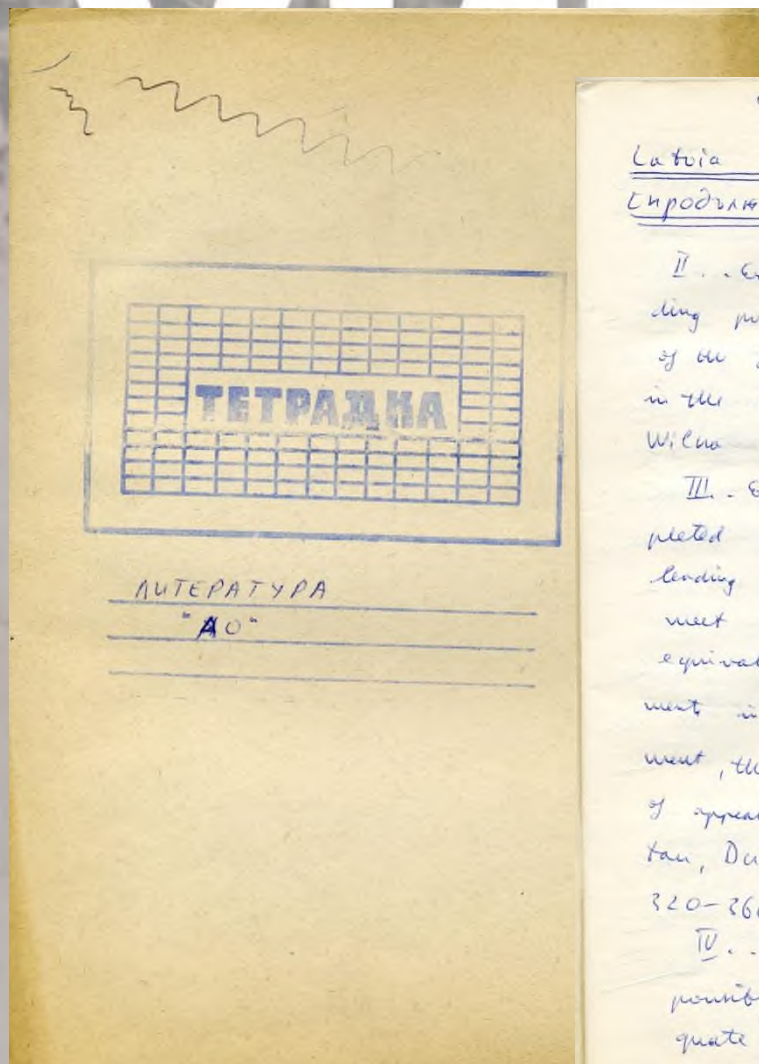 ТЕТРАДКА
ЛИТЕРАТУРА
"АО"
Latvia
II . .
ding
of the
in the
Wilno
III. .
pleted
leading
meet
equival
ment, the
of appea
tau, Du
320-36
IV . .
possib
quate